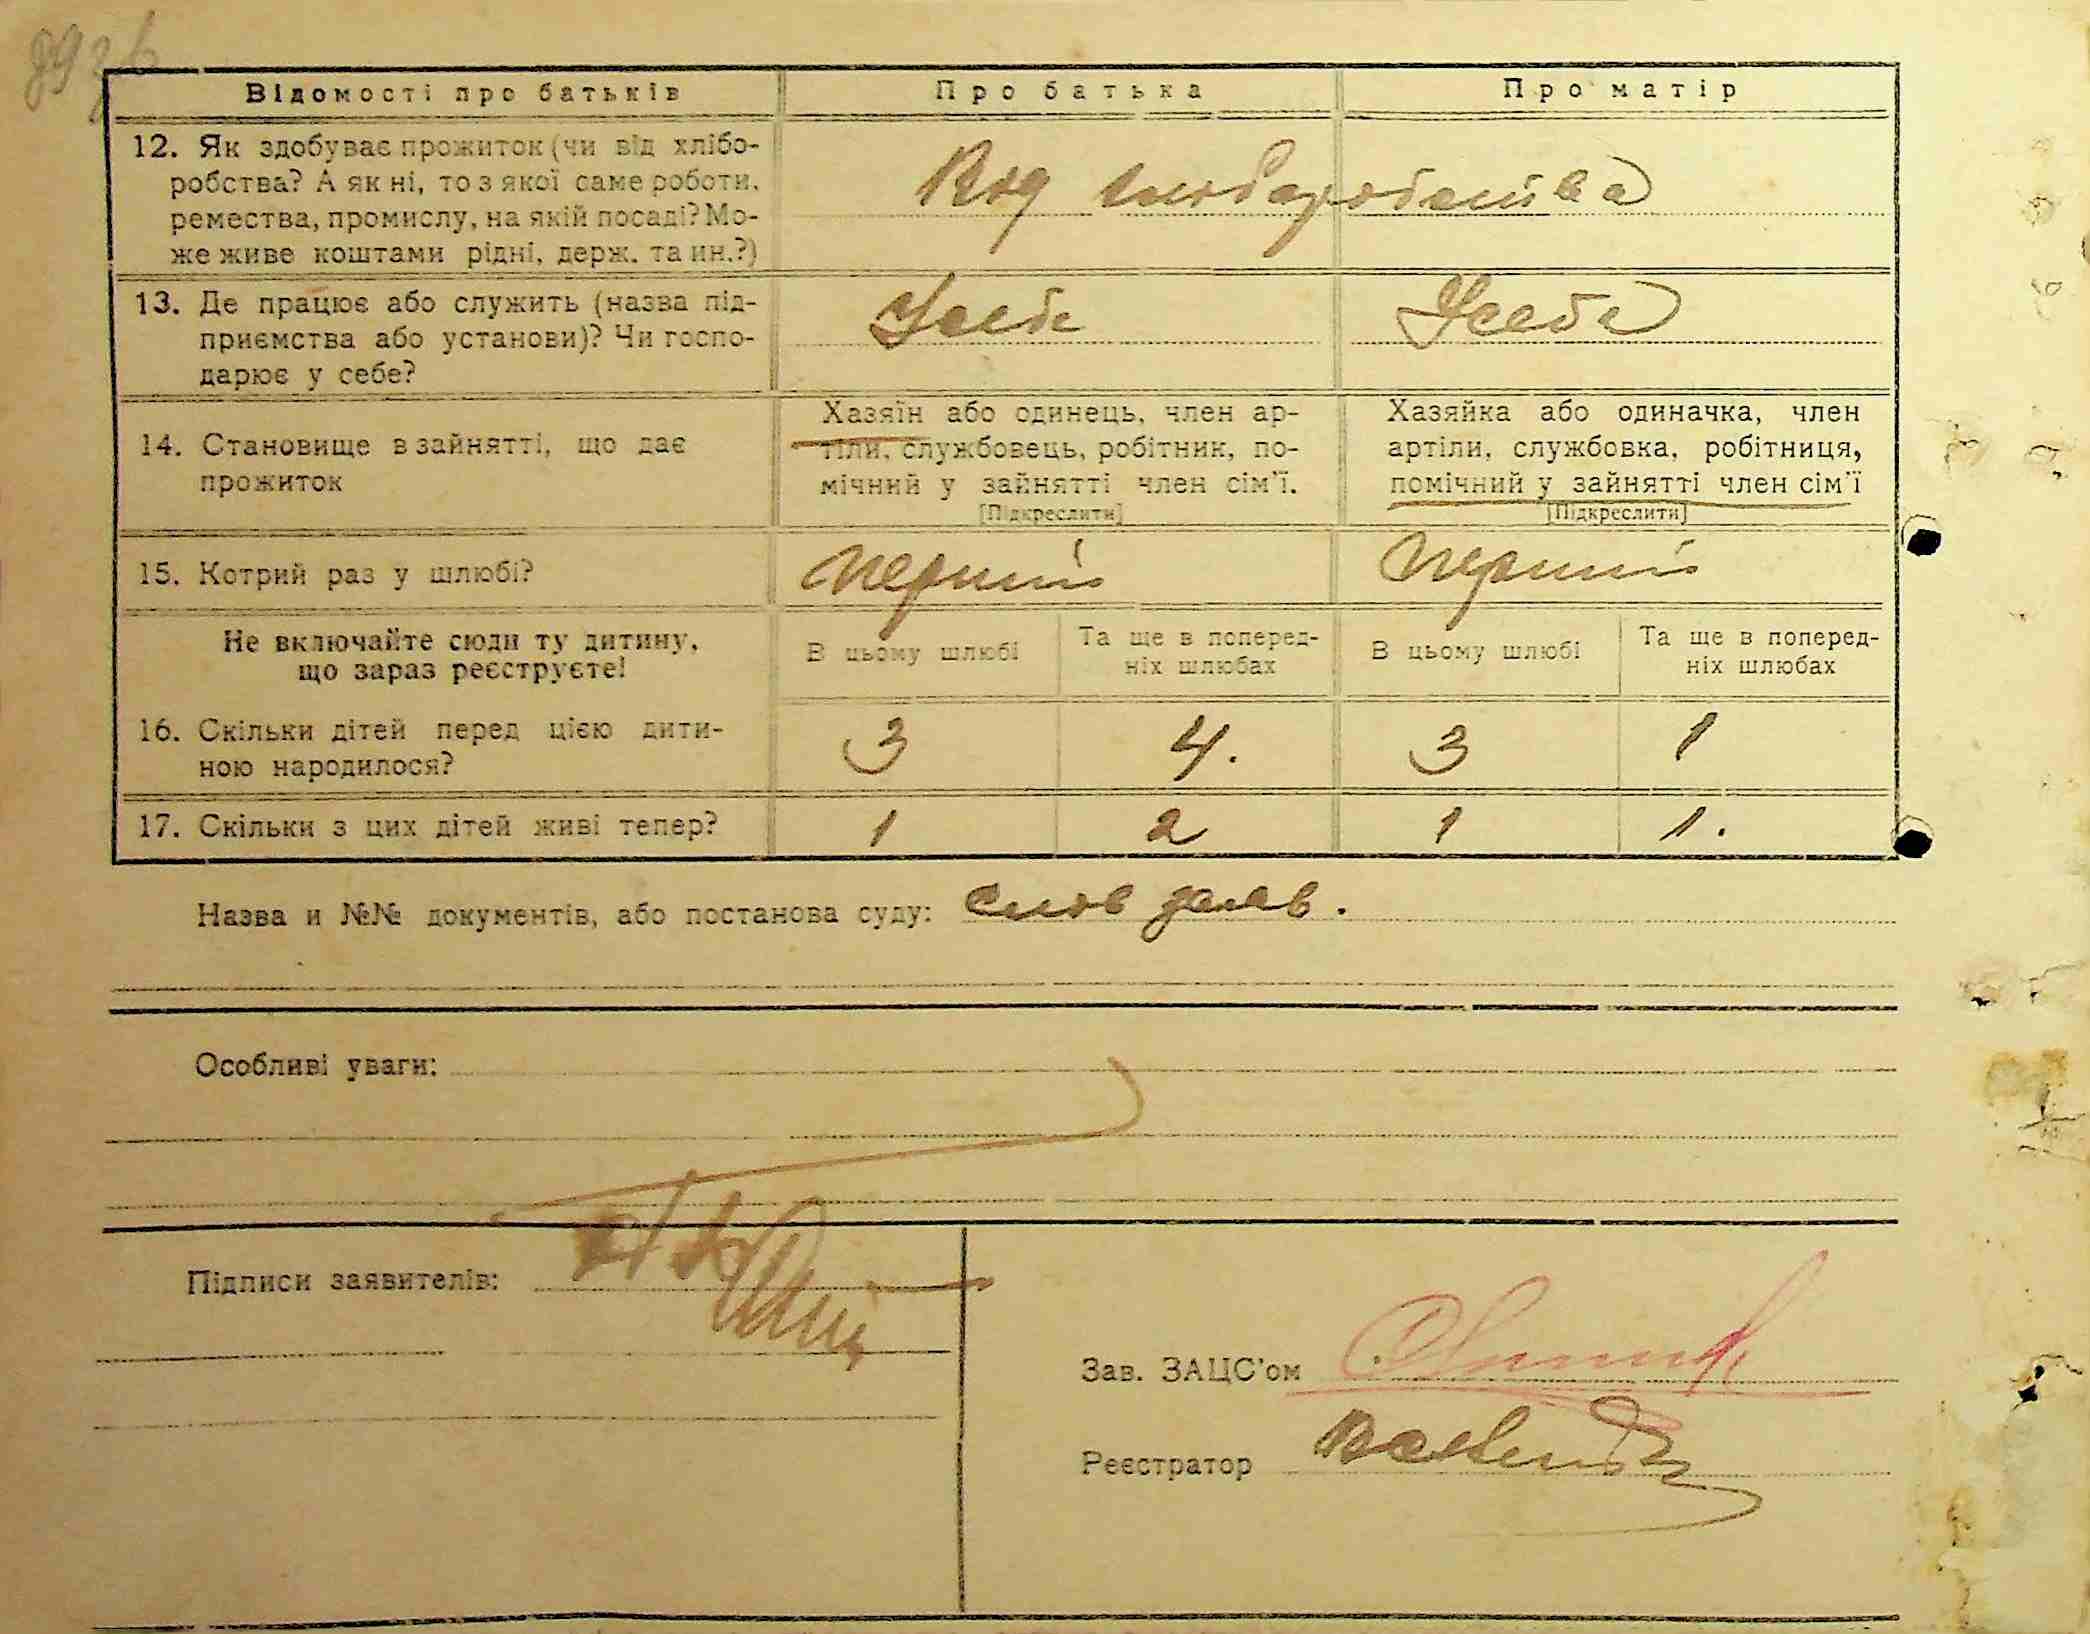 Відомості про батьків
Про батька
Про матір
12. Як здобуває прожиток (чи від хлібо-
робства? А як ні, то з якої саме роботи,
ремества, промислу, на якій посаді? Мо-
же живе коштами рідні, держ. та ин.?)
Від хлібаробства
13. Де працює або служить (назва під-
приємства або установи)? Чи госпо-
дарює у себе?
Усебе
Усебе
14. Становище в зайнятті, що дає
прожиток
Хазяїн або одинець, член ар-
тіли, службовець, робітник, по-
мічний у зайнятті член сім'ї.
[Підкреслити]
Хазяйка або одиначка, член
артіли, службовка, робітниця,
помічний у зайнятті член сім'ї
[Підкреслити]
15. Котрий раз у шлюбі?
Перший
Перший
Не включайте сюди ту дитину,
що зараз реєструєте!
В цьому шлюбі
Та ще в поперед-
ніх шлюбах
В цьому шлюбі
Та ще в поперед-
ніх шлюбах
16. Скільки дітей перед цією дити-
ною народилося?
3
4.
3
1
17. Скільки з цих дітей живі тепер?
1
2
1
1.
Назва и №№ документів, або постанова суду: слов заяв.
Особливі уваги:
Підписи заявителів:
Зав. ЗАЦС'ом
Реєстратор